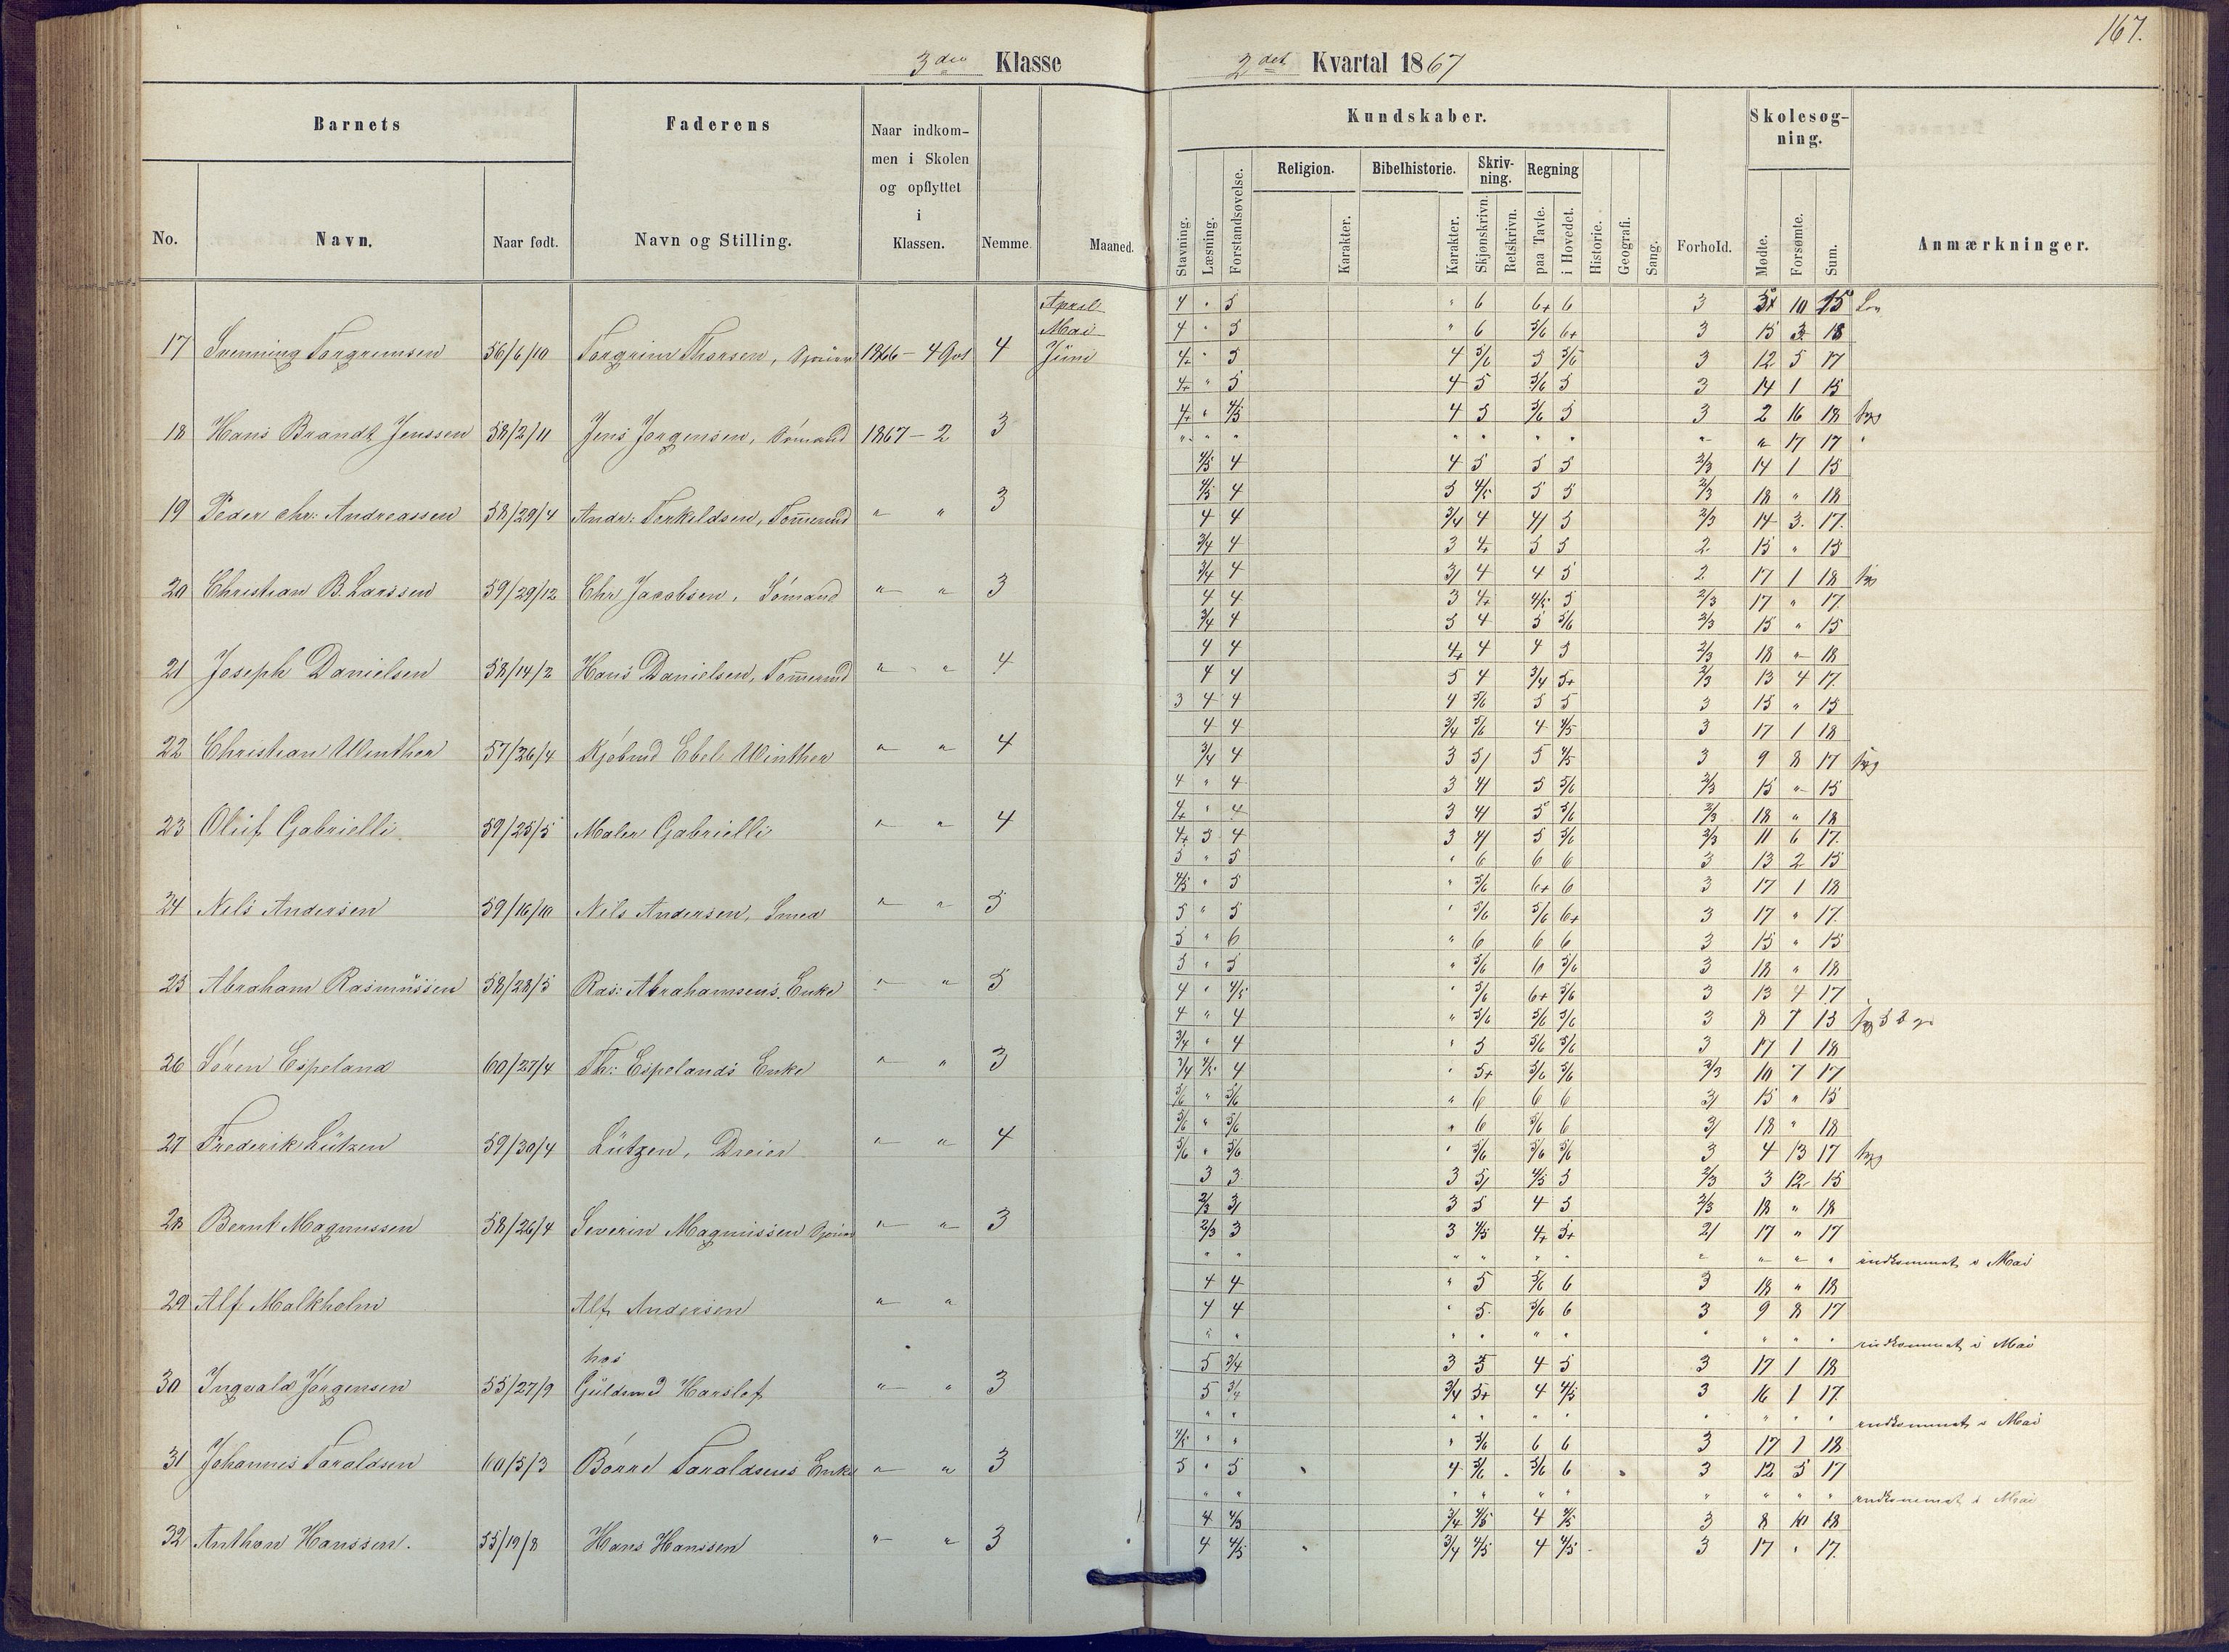 167.
3die Klasse
2det Kvartal 1867
Barnets
Faderens
Naar indkom-
men i Skolen
og opflyttet
i
Klassen.
No.
Navn.
Naar født.
Navn og Stilling.
Nemme.
Maaned.
Kundskaber.
Skolesøg-
ning.
Stavning.
Læsning.
Forstandsøvelse.
Religion.
Karakter.
Bibelhistorie.
Karakter.
Skriv-
ning.
Skjønskrivn.
Retskrivn.
Regning
paa Tavle.
i Hovedet.
Historie.
Geografi.
Sang.
Forhold.
Mødte.
Forsømte.
Sum.
Anmærkninger.
April
Mai
17 Svenning Torgrimsen 56/6/10 Torgrim Thorsen, 1866 - 4 4 Juni
18 Hans Brandt Jenssen 58/2/11 Jens Jørgensen, Sømand 1867 - 2 3
19 Peder Chr: Andreassen 58/29/4 Andr: Torkildsen, Tømmermd " " 3
20 Christian B. Larssen 59/29/12 Chr Jacobsen, Sømand " " 3
21 Joseph Danielsen 58/14/2 Hans Danielsen, Tømmermd " " 4
22 Christian Winther 57/26/4 Kjøbmd Ebel Winther " " 4
23 Oluf Gabrielli 59/25/5 Maler Gabrielli " " 4
24 Nels Andersen 59/16/10 Nils Andersen, Smed " " 5
25 Abraham Rasmussen 58/28/5 Ras: Abrahamsens Enke " " 5
26 Søren Espeland 60/27/4 Th: Espelands Enke " " 3
27 Frederik Lützen 59/30/4 Lützen, Dreier " " 4
28 Bernt Magnussen 58/26/4 Severin Magnussen " " 3
29 Alf Malkholm Alf Andersen " "
hos
30 Ingvald Jørgensen 55/27/9 Guldsmd Harslof " " 3
31 Johannes Taraldsen 60/5/3 Børre Taraldsens Enke " " 3
32 Anthon Hanssen. 55/19/8 Hans Hanssen " " 3
4 " 5 " 6 6+ 6 3 5 10 15
4 " 5 " 6 5/6 6+ 3 15 3 18
4+ " 5 4 5/6 5 5/6 3 12 5 17
4+ " 5 4 5 5/6 5 3 14 1 15
4+ " 4/5 4 5 5/6 5 3 2 16 18 syg
" " " " " " " " " 17 17 "
4/5 4 4 5 5 5 2/3 14 1 15
4/5 4 5 4/5 5 5 2/3 18 " 18
4 4 3/4 4 4/ 5 2/3 14 3 17
3/4 4 3 4+ 5 5 2 15 " 15
3/4 4 3/ 4 4 5 2 17 1 18 syg
4 4 3 4+ 4/5 5 2/3 17 " 17
3/4 4 5 4 5 5/6 2/3 15 " 15
4 4 4+ 4 4 5 2/3 18 " 18
4 4 5 4 3/4 5+ 2/3 13 4 17
3 4 4 4 5/6 5 5 3 15 " 15
4 4 3/4 5/6 4 4/5 3 17 1 18
3/4 4 3 5/ 5 4/5 3 9 8 17 syg
4 " 4 3 4/ 5 5/6 2/3 15 " 15
4+ " 4 3 4/ 5 5/6 2/3 18 " 18
4+ 3 4 3 4/ 5 5/6 2/3 11 6 17
5 " 5 " 6 6 6 3 13 2 15
4/5 " 5 " 5/6 6+ 6 3 17 1 18
5 " 5 " 5/6 5/6 6+ 3 17 " 17
5 " 6 " 6 6 6 3 15 " 15
5 " 5 " 5/6 6 5/6 3 18 " 18
4 " 4/5 " 5/6 6+ 5/6 3 13 4 17
4 " 4 " 5/6 5/6 5/6 3 8 7 15 syg
3/4 " 4 " 5 5/6 5/6 3 17 1 18
3/4 4/5 4 " 5+ 5/6 5/6 2/3 10 7 17
5/6 " 5/6 " 6 6 6 3/ 15 " 15
5/6 " 5/6 " 6 5/6 6 3/ 18 " 18
5/6 " 5/6 " 5/6 5/6 5/6 3 4 13 17 syg
3 3 3 5/ 4/5 5 2/3 3 12 15
2/3 3/ 3 5 4 5 2/3 18 " 18
2/3 3 3 4/5 4+ 5+ 2/ 17 " 17
" " " " " " " " " " indkommet i Mai
4 4 " 5 5/6 6 3 18 " 18
4 4 " 5 5/6 6 3 9 8 17
" " " " " " " " " " indkommet i Mai
5 3/4 3 5 4 5 3 17 1 18
5 3/4 3/4 5+ 4 4/5 3 16 1 17
" " " " " " " " " " indkommet i Mai
4/5 " " " 5/6 6 6 3 17 1 18
5 " 5 4 5/6 5/6 6 3 12 5 17
" " " " " " " " " " indkommet i Mai
4 4/5 3/4 4/5 4 4/5 3 8 10 18
4 4/5 3/4 4/5 4 4/5 3 17 " 17